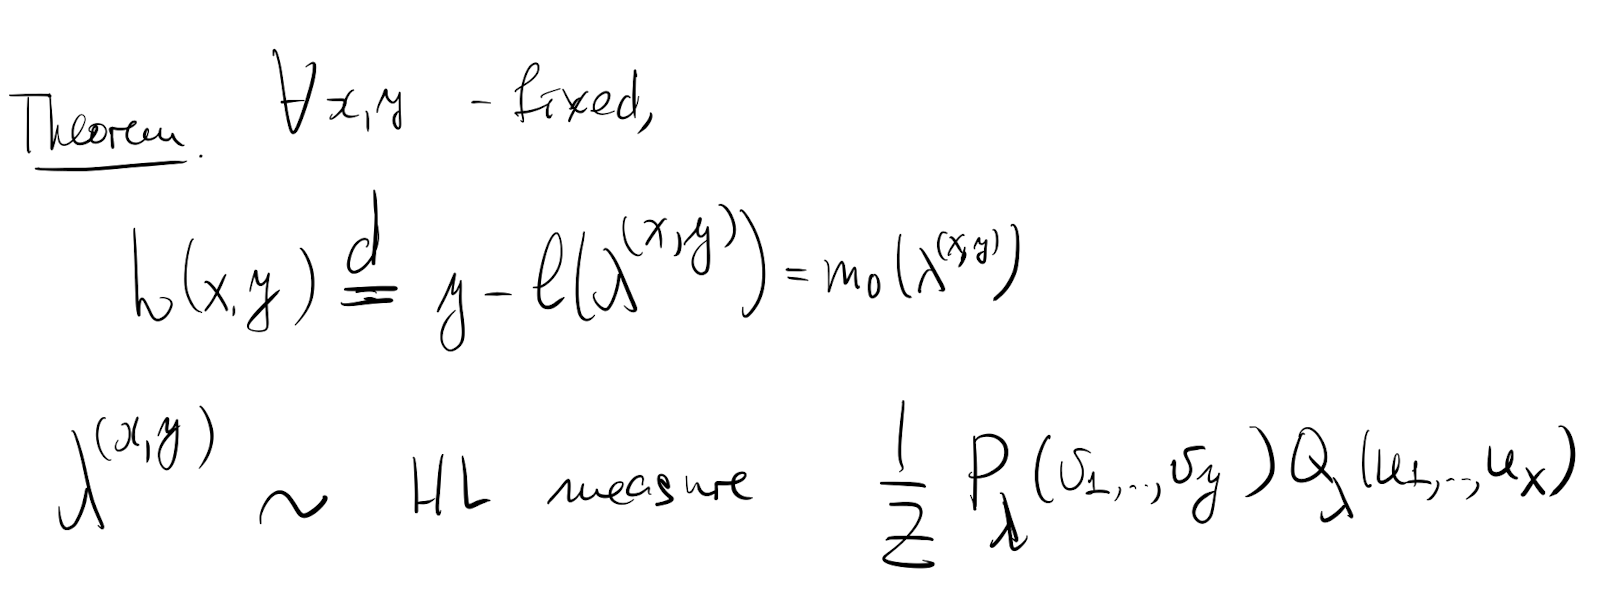 Theorem. ∀ x, y - fixed,
h(x, y) =^d y - ℓ(λ^(x,y)) = m_0(λ^(x,y))
λ^(x,y) ~ HL measure 1/Z P_λ(v_1,..,v_y) Q_λ(u_1,..,u_x)